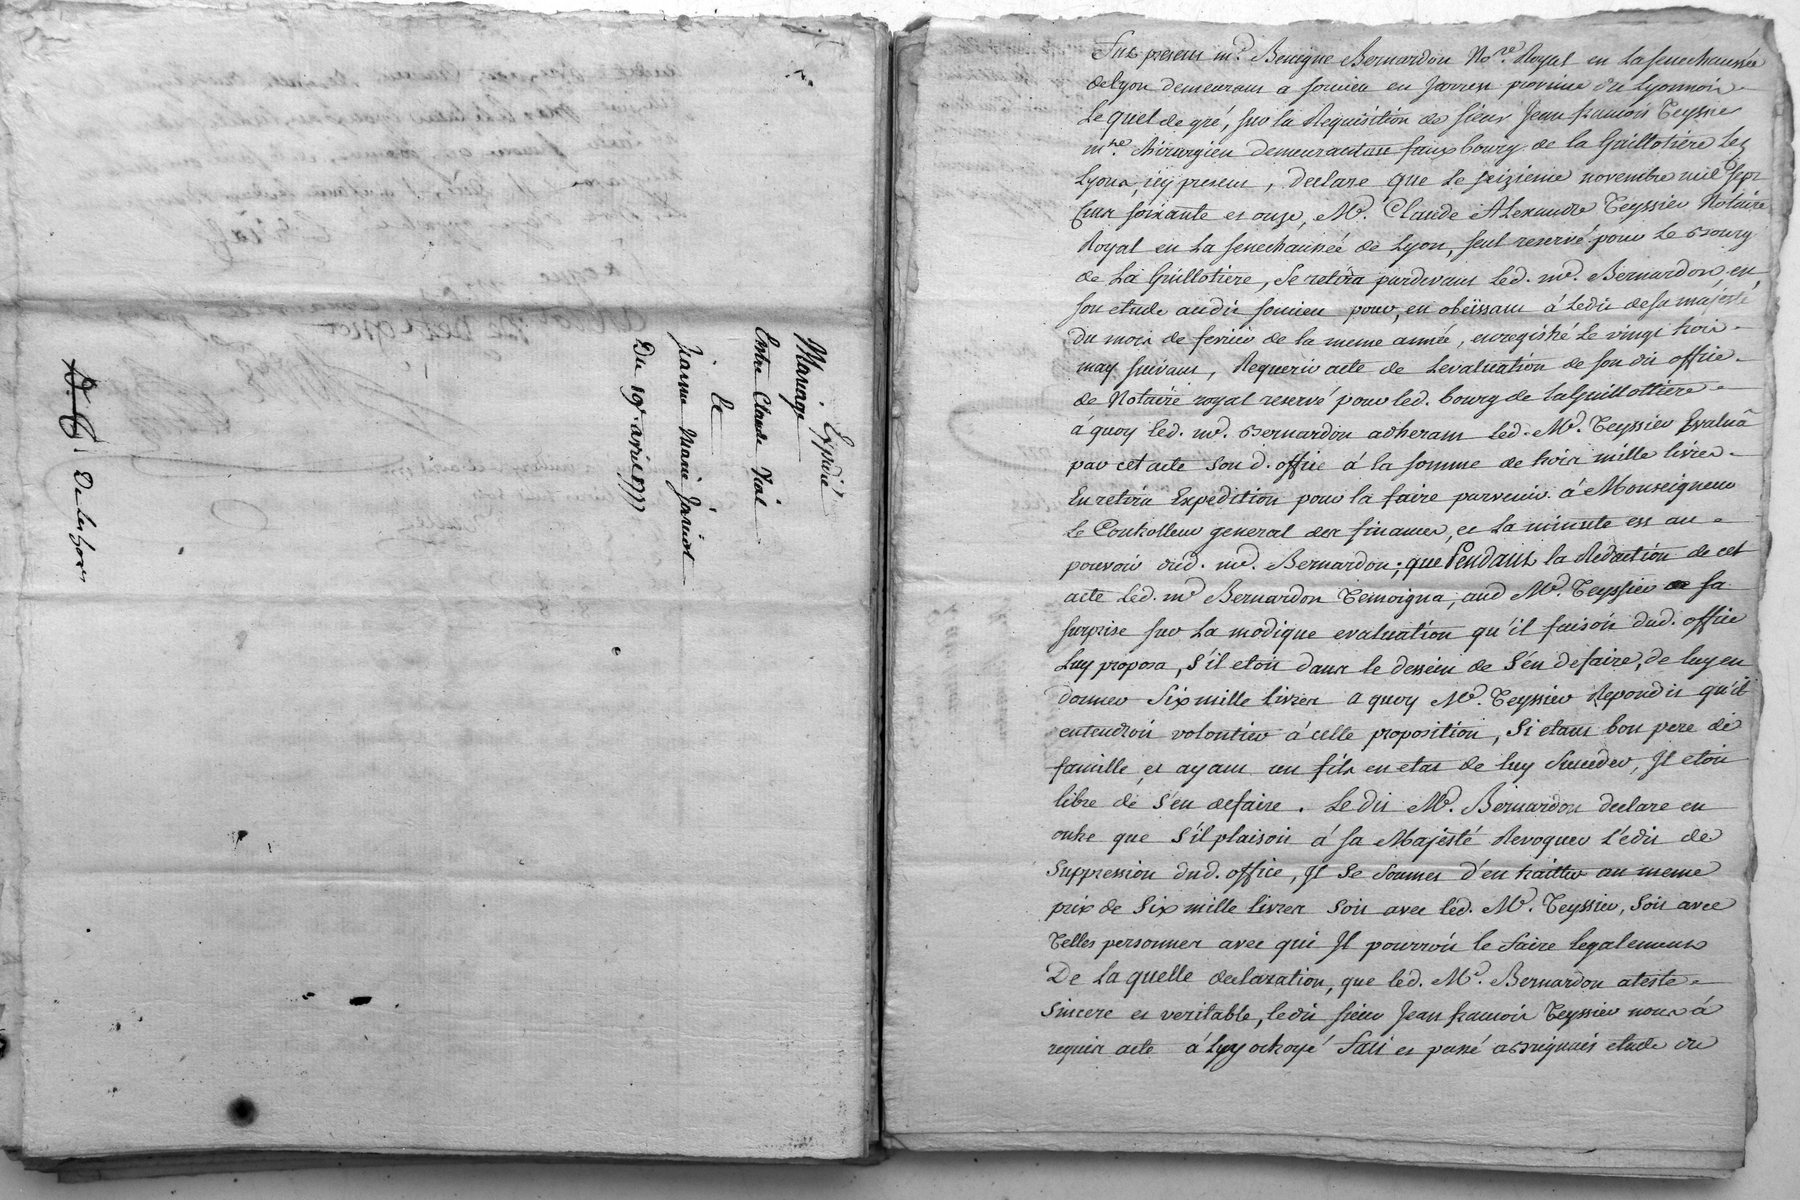 Expédié
Mariage
Entre Claude Vial
Et
Jeanne Marie Jariot
Du 19e. avril 1777
D. C. Delestores
Fut present me. Benigne Bernardon Nore. Royal en la senechaussée
de Lyon demeurant a soucieu en Jarrest province du Lyonnois
Lequel de gré, sur la Requisition de sieur Jean francois Teyssier
mtre. chirurgien demeurant au fauxbourg de la Guillotiere Les
Lyon, icy present, declare que le seizieme novembre mil sept
Cent soixante et onze, Me. Claude Alexandre Teyssier Notaire
Royal en la senechaussée de Lyon, seul reservé pour le Bourg
de la Guillotiere, se retira pardevant led. me. Bernardon en
son etude audit soucieu pour, en obeissant à Ledit de sa majesté
du mois de fevrier de la meme année, enregistré le vingt trois
may suivant, Requerir acte de Levaluation de son dit office
de Notaire royal reservé pour led. bourg de la Guillottiere
à quoy led. me. Bernardon adherant led. Me. Teyssier Evalua
par cet acte son d. office à la somme de trois mille livres
En retira Expedition pour la faire parvenir à Monseigneur
le Controlleur general des finances, et la minute est au
pouvoir dud. me. Bernardon; que Pendant la Redaction de cet
acte Led. me Bernardon Temoigna, aud Me. Teyssier sa
surprise sur la modique evaluation qu'il faisoit dud. office
Luy proposa, s'il etoit dans le dessein de s'en defaire, de luy en
donner six mille livres a quoy Me. Teyssier Repondit qu'il
entendroit volontier à cette proposition, si etant bon pere de
famille et ayant un fils en etat de luy succeder, Il etoit
libre de s'en defaire. Le dit Me. Bernardon declare en
outre que s'il plaisoit à sa Majesté Revoquer l'edit de
suppression dud. office, Il se soumet d'en traitter au meme
prix de six mille livres soit avec led. Me. Teyssier, soit avec
Telles personnes avec qui Il pourroit le faire legalement
De laquelle declaration, que led. Me. Bernardon ateste
sincere et veritable, ledit sieur Jean francois Teyssier nous à
requis acte à Luy octroyé fait et passé a Brignais etude de